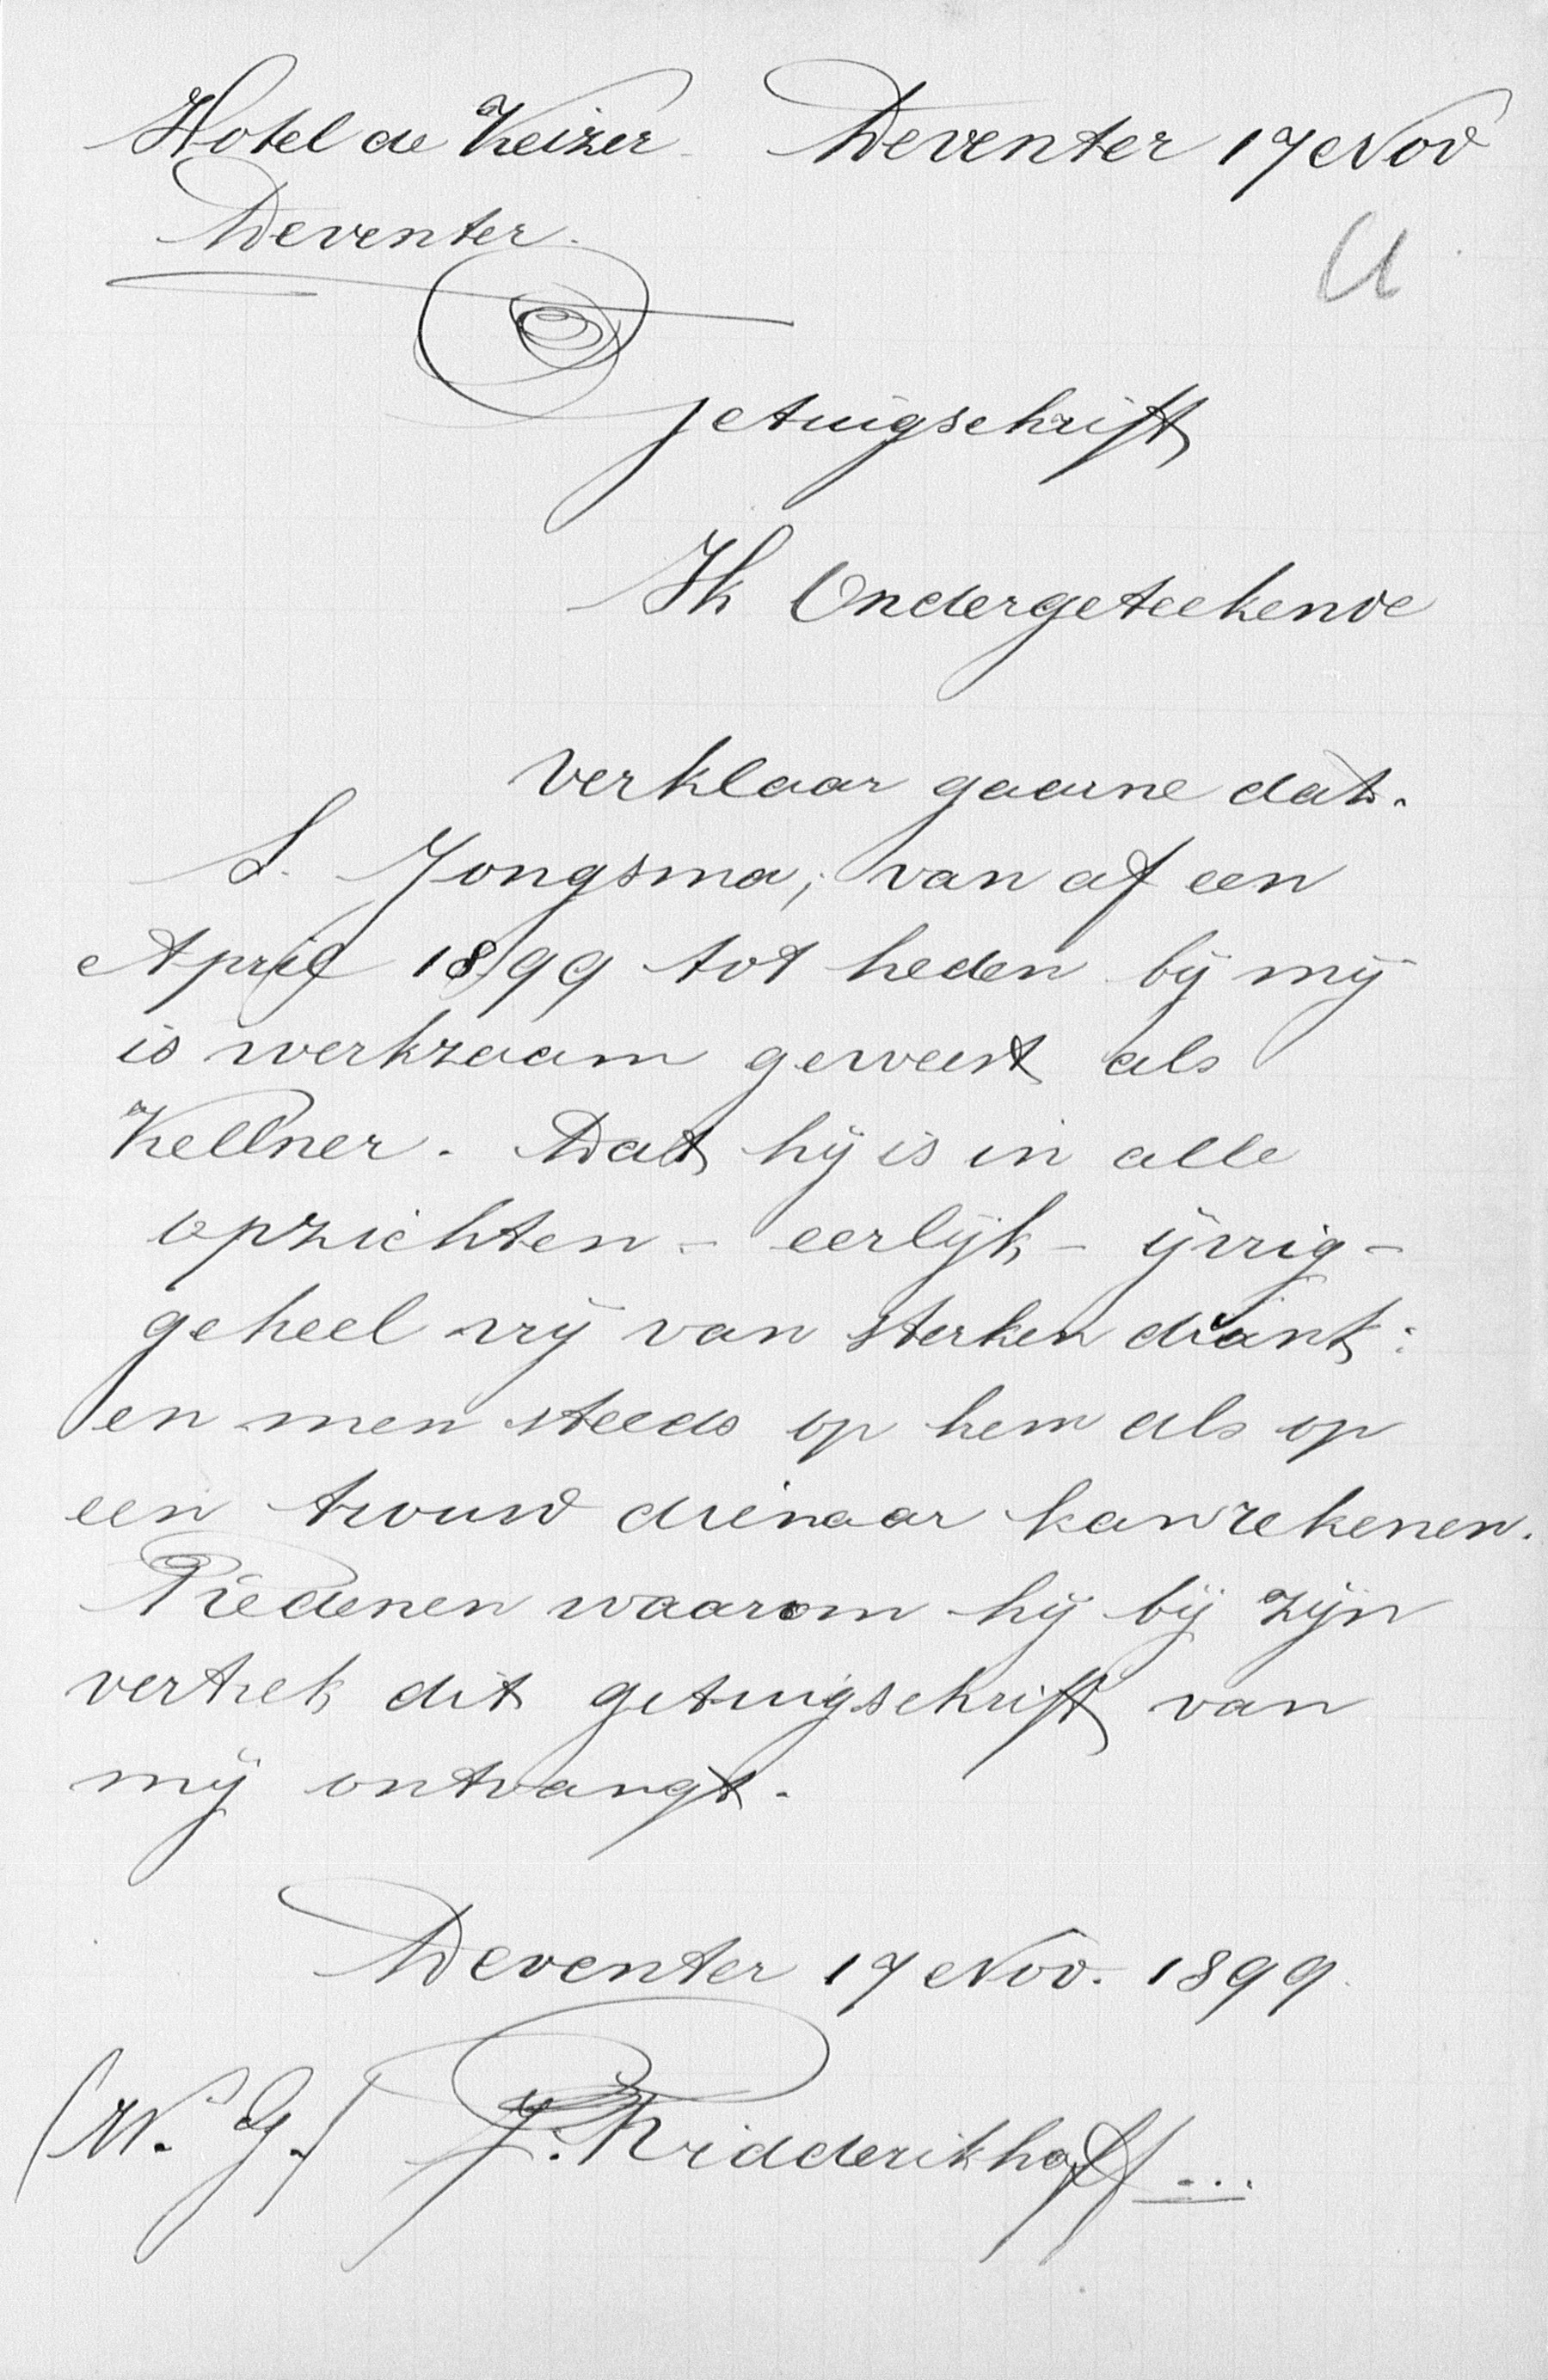 Hotel de Keizer Deventer 17 Nov
Deventer.
U
getuigschrift
Ik Ondergeteekende
verklaar gaarne dat.
S. Jongsma, van af een
April 1899 tot heden bij mij
is werkzaam geweest als
Kellner. Dat hij is in alle
opzichten - eerlijk - ijvrig -
geheel vrij van sterken drank:
en men steeds op hem als op
een trouw dienaar kan rekenen.
Riedenen waarom hij bij zijn
vertrek dit getuigschrift van
mij ontvangt.
Deventer 17 Nov. 1899.
(W. G.) J. Ridderikhoff...